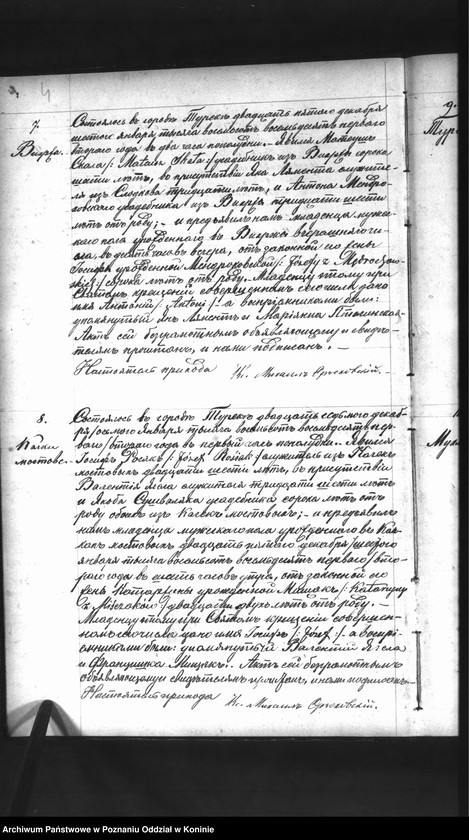 4
7.
Состоялось въ городѣ Турекъ двадцать пятого декабря
шестого января тысяча восемьсотъ восемьдесятъ перваго
втораго года въ два часа пополудни. Явился Матеушъ
Скала /: Mateusz Skała :/ усадебникъ изъ сорока
шести лѣтъ, въ присутствіи Яна служите-
ля изъ Слодкова тридцати лѣтъ, и Антона Мендро-
усадебника изъ тридцати шести
лѣтъ отъ роду; — и предъявилъ намъ младенца муже-
скаго пола урожденного въ вчерашняго чи-
сла, въ десять часовъ вечера, отъ законной его жены
Іозефы урожденной /: Józefy z
сорока лѣтъ отъ роду. Младенцу этому при
Святомъ крещеніи совершенномъ сего числа дано
имя Антоній /: Antoni :/ а воспріемниками были:
упомянутый Янъ и Маріянна
Актъ сей безграмотнымъ объявляющему и свидѣ-
телямъ прочитанъ, и нами подписанъ. —
Настоятель прихода Кс. Михаилъ
8.
мостове.
Состоялось въ городѣ Турекъ двадцать седьмого декаб-
ря /осьмого Января тысяча восемьсотъ восемьдесятъ пер-
ваго /втораго года въ первый часъ пополудни. Явился
Іосифъ Росякъ /: Józef Rosiak :/ служитель изъ
мостовыхъ двадцати шести лѣтъ, въ присутствіи
Валентія служителя тридцати шести лѣтъ
и Якоба усадебника сорока лѣтъ отъ
роду обоихъ изъ мостовыхъ; — и предъявилъ
намъ младенца мужескаго пола урожденного въ
мостовыхъ двадцать пятого декабря /шестого
января тысяча восемьсотъ восемьдесятъ перваго /вто-
раго года въ шесть часовъ утра, отъ законной его
жены Катаржины урожденной /: Katarzyny
z :/ двадцати двухъ лѣтъ отъ роду. —
Младенцу этому при Святомъ крещеніи совершен-
номъ сего числа дано имя Іосифъ /: Józef :/ а воспрі-
емниками были: упомянутый Валентій
и Францишка Актъ сей безграмотнымъ
объявляющему свидѣтелямъ прочитанъ, и нами подписанъ.
Настоятель прихода Кс. Михаилъ
9.
Archiwum Państwowe w Poznaniu Oddział w Koninie